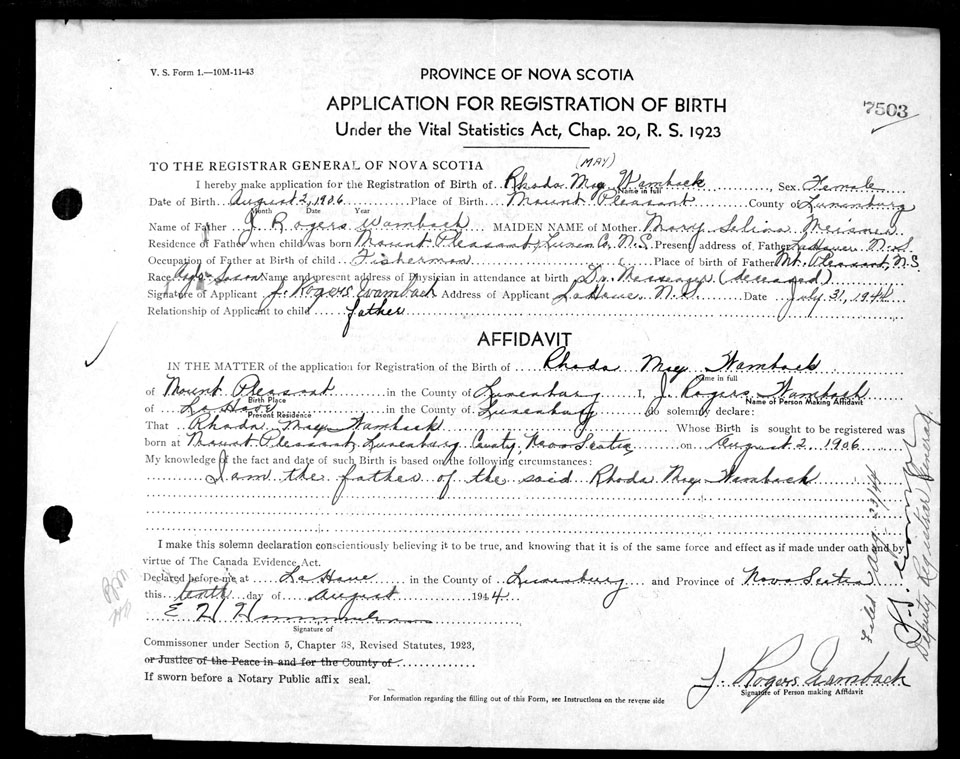 V. S. Form 1.—10M-11-43
PROVINCE OF NOVA SCOTIA
APPLICATION FOR REGISTRATION OF BIRTH
7503
Under the Vital Statistics Act, Chap. 20, R. S. 1923
TO THE REGISTRAR GENERAL OF NOVA SCOTIA
(MAY)
I hereby make application for the Registration of Birth of Rhoda May Wamback, Sex Female
Name in full
Date of Birth August 2, 1906 Place of Birth Mount Pleasant County of Lunenburg
Month Date Year
Name of Father J. Rogers Wamback MAIDEN NAME of Mother Mary Selina
Residence of Father when child was born Mount Pleasant, Lunen Co. N.S. Present address of Father LaHave N.S.
Occupation of Father at Birth of child Fisherman Place of birth of Father Mt. Pleasant, N.S.
Race Anglo-Saxon Name and present address of Physician in attendance at birth Dr. Messenger (deceased)
Signature of Applicant J. Rogers Wamback Address of Applicant LaHave N.S. Date July 31, 1944
Relationship of Applicant to child father
AFFIDAVIT
IN THE MATTER of the application for Registration of the Birth of Rhoda May Wamback
Name in full
of Mount Pleasant in the County of Lunenburg I, J. Rogers Wamback
Birth Place Name of Person Making Affidavit
of LaHave in the County of Lunenburg do solemnly declare:
Present Residence
That Rhoda May Wamback Whose Birth is sought to be registered was
born at Mount Pleasant, Lunenburg County, Nova Scotia on August 2, 1906
My knowledge of the fact and date of such Birth is based on the following circumstances:
I am the father of the said Rhoda May Wamback
I make this solemn declaration conscientiously believing it to be true, and knowing that it is of the same force and effect as if made under oath and by
virtue of The Canada Evidence Act.
Declared before me at LaHave in the County of Lunenburg and Province of Nova Scotia
this tenth day of August 1944
E H
Signature of
Commissioner under Section 5, Chapter 38, Revised Statutes, 1923,
or Justice of the Peace in and for the County of
If sworn before a Notary Public affix seal.
J. Rogers Wamback
Signature of Person making Affidavit
For Information regarding the filling out of this Form, see Instructions on the reverse side
Filed Aug. 23/44
Deputy Registrar General